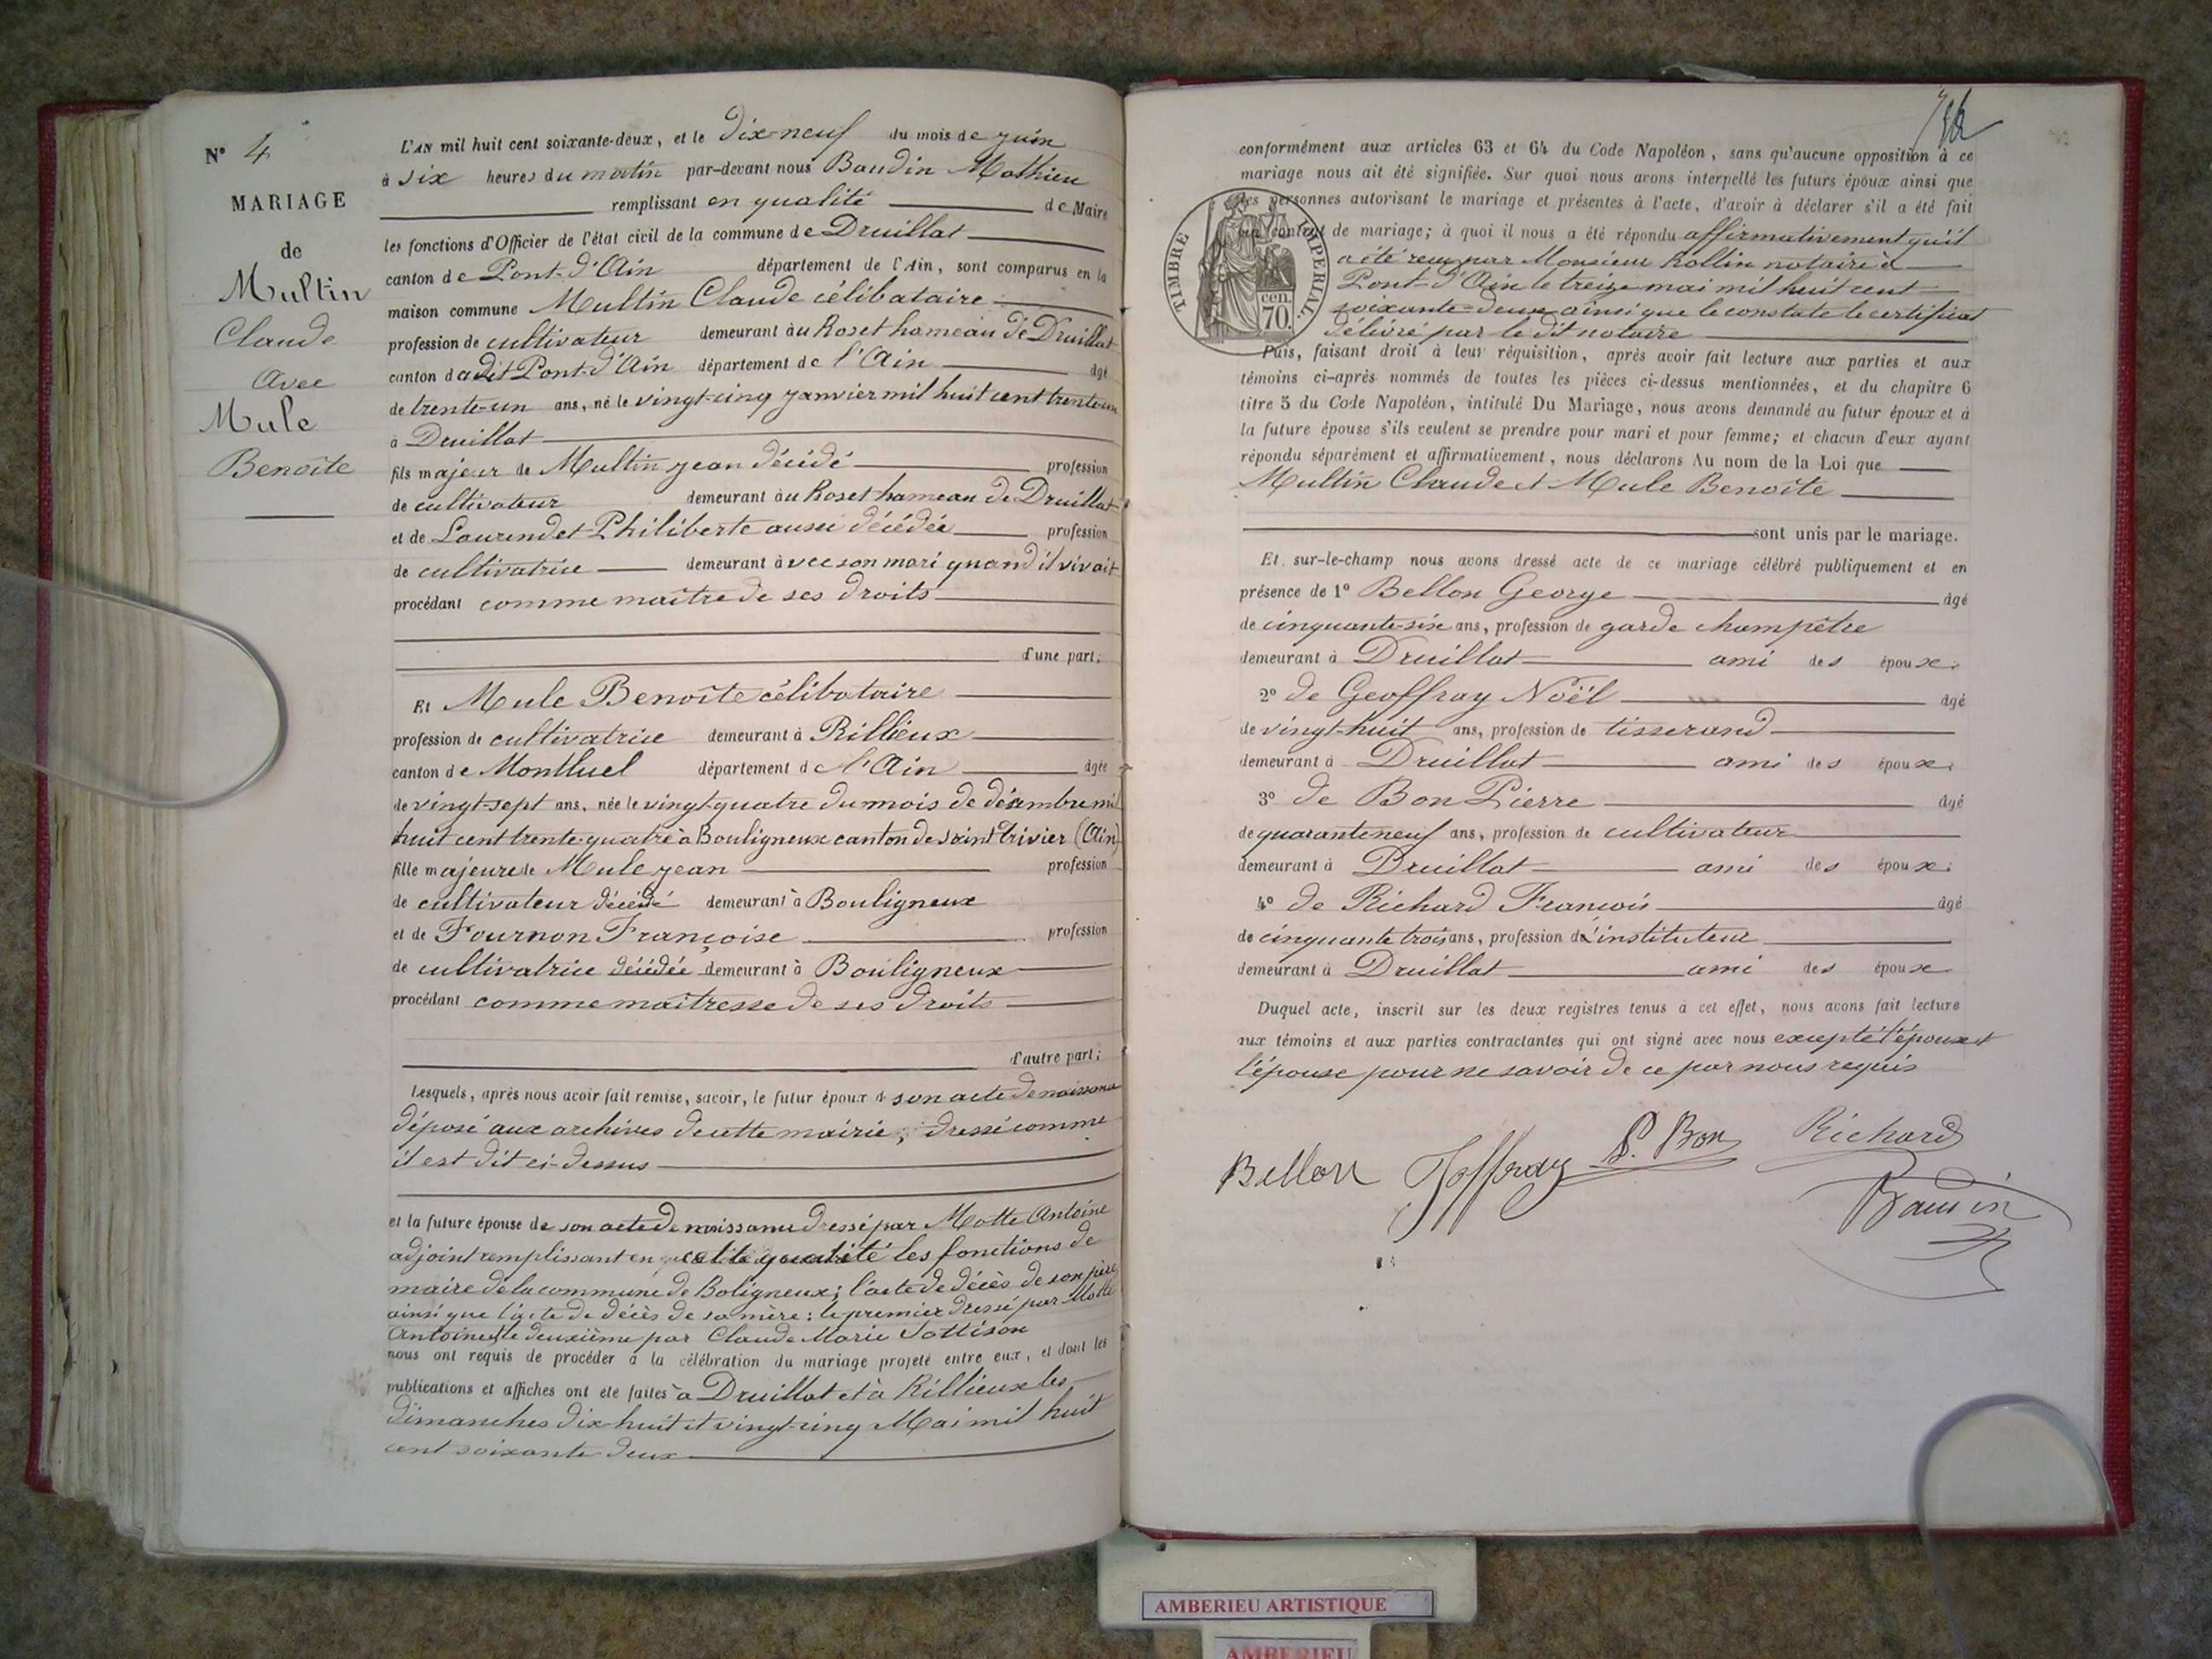 N° 4
MARIAGE
de
Multin
Claude
Avec
Mule
Benoîte
L'AN mil huit cent soixante-deux, et le Dix-neuf du mois de juin
à six heures du matin par-devant nous Baudin Mathieu
remplissant en qualité de Maire
les fonctions d'Officier de l'état civil de la commune de Druillat
canton de Pont-d'Ain département de l'Ain, sont comparus en la
maison commune Multin Claude célibataire
profession de cultivateur demeurant au Roset hameau de Druillat
canton du dit Pont-d'Ain département de l'Ain âgé
de trente-un ans, né le vingt-cinq janvier mil huit cent trente-un
à Druillat
fils majeur de Multin jean décédé profession
de cultivateur demeurant au Roset hameau de Druillat
et de Laurendet Philiberte aussi décédée profession
de cultivatrice demeurant avec son mari quand il vivait
procédant comme maître de ses droits
d'une part;
Et Mule Benoîte célibataire
profession de cultivatrice demeurant à Rillieux
canton de Montluel département de l'Ain âgée
de vingt-sept ans, née le vingt-quatre du mois de décembre mil
huit cent trente-quatre à Bouligneux canton de saint Trivier (Ain)
fille majeure de Mule jean profession
de cultivateur décédé demeurant à Bouligneux
et de Fournon Françoise profession
de cultivatrice décédée demeurant à Bouligneux
procédant comme maîtresse de ses droits
d'autre part;
Lesquels, après nous avoir fait remise, savoir, le futur époux d son acte de naissance
déposé aux archives de cette mairie, dressé comme
il est dit ci-dessus
et la future épouse de son acte de naissance dressé par Motte Antoine
adjoint remplissant en cette qualité les fonctions de
maire de la commune de Boligneux; l'acte de décès de son père
ainsi que l'acte de décès de sa mère: le premier dressé par Motte
Antoine, le deuxième par Claude Marie
nous ont requis de procéder à la célébration du mariage projeté entre eux, et dont les
publications et affiches ont été faites à Druillat et à Rillieux les
dimanches dix-huit et vingt-cinq Mai mil huit
cent soixante deux
conformément aux articles 63 et 64 du Code Napoléon, sans qu'aucune opposition à ce
mariage nous ait été signifiée. Sur quoi nous avons interpellé les futurs époux ainsi que
les personnes autorisant le mariage et présentes à l'acte, d'avoir à déclarer s'il a été fait
un contrat de mariage; à quoi il nous a été répondu affirmativement qu'il
a été reçu par Monsieur Rollin notaire à
Pont-d'Ain le treize mai mil huit cent
soixante-deux ainsi que le constate le certificat
délivré par le dit notaire
TIMBRE IMPERIAL.
cen.
70.
Puis, faisant droit à leur réquisition, après avoir fait lecture aux parties et aux
témoins ci-après nommés de toutes les pièces ci-dessus mentionnées, et du chapitre 6
titre 5 du Code Napoléon, intitulé Du Mariage, nous avons demandé au futur époux et à
la future épouse s'ils veulent se prendre pour mari et pour femme; et chacun d'eux ayant
répondu séparément et affirmativement, nous déclarons Au nom de la Loi que
Multin Claude et Mule Benoîte
sont unis par le mariage.
Et, sur-le-champ nous avons dressé acte de ce mariage célébré publiquement et en
présence de 1° Bellon George âgé
de cinquante-six ans, profession de garde champêtre
demeurant à Druillat ami des époux.
2° de Geoffray Noël âgé
de vingt-huit ans, profession de tisserand
demeurant à Druillat ami des époux.
3° de Bon Pierre âgé
de quarante neuf ans, profession de cultivateur
demeurant à Druillat ami des époux.
4° de Richard François âgé
de cinquante trois ans, profession d'instituteur
demeurant à Druillat ami des époux
Duquel acte, inscrit sur les deux registres tenus à cet effet, nous avons fait lecture
aux témoins et aux parties contractantes qui ont signé avec nous excepté l'époux et
l'épouse pour ne savoir de ce par nous requis
Bellon Joffray P. Bon Richard
Baudin
AMBERIEU ARTISTIQUE
AMBERIEU